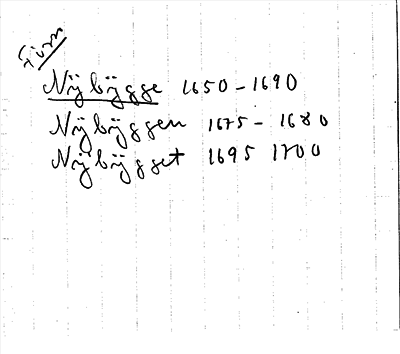 Nÿbÿgge 1650-1690
Nÿbÿggen 1675-1680
Nÿbÿgget 1695 1700